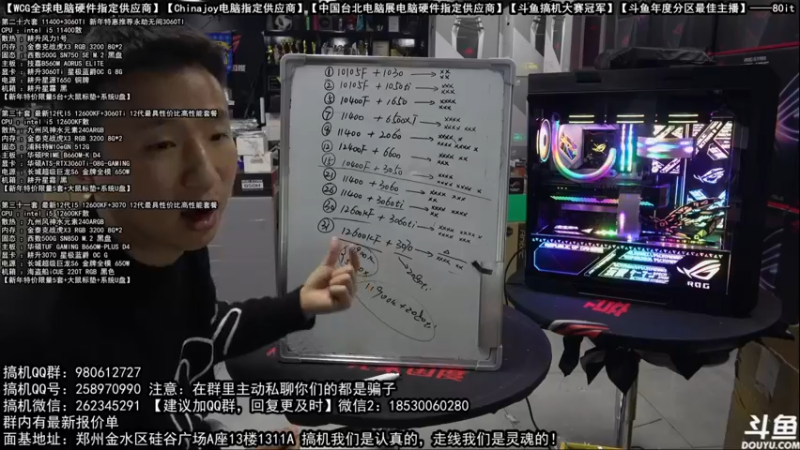 【WCG全球电脑硬件指定供应商】【Chinajoy电脑指定供应商】【中国台北电脑展电脑硬件指定供应商】【斗鱼搞机大赛冠军】【斗鱼年度分区最佳主播】——80it
第二十六套 11400+3060TI 新年特惠推荐永劫无间3060TI
CPU：intel i5 11400散
散热：耕升风力1号
内存：金泰克战虎X3 RGB 3200 8G*2
固态：西数500G SN750 SE M.2 黑盘
主板：技嘉B560M AORUS ELITE
显卡：耕升3060Ti 星极蓝爵OC G 8G
电源：耕升星源T650 铜牌
机箱：耕升星霜 黑
【新年特价限量5台+大鼠标垫+系统U盘】
第三十套 最新12代I5 12600KF+3060Ti 12代最具性价比高性能套餐
CPU：intel i5 12600KF散
散热：九州风神水元素240ARGB
内存：金泰克战虎X3 RGB 3200 8G*2
固态：浦科特M10eGN 512G
主板：华硕PRIME B660M-K D4
显卡：华硕ATS-RTX3060TI-O8G-GAMING
电源：长城超级巨龙S6 金牌全模 650W
机箱：耕升星霜 黑
【新年特价限量5套+大鼠标垫+系统U盘】
第三十一套 最新12代I5 12600KF+3070 12代最具性价比高性能套餐
CPU：intel i5 12600KF散
散热：九州风神水元素240ARGB
内存：金泰克战虎X3 RGB 3200 8G*2
固态：西数500G SN850 M.2 黑盘
主板：华硕TUF GAMING B660M-PLUS D4
显卡：耕升3070 星极蓝爵 OC G
电源：长城超级巨龙S6 金牌全模 650W
机箱：海盗船iCUE 220T RGB 黑色
【新年特价限量5套+大鼠标垫+系统U盘】
① 10105F + 1030 → xx
② 10105F + 1050ti → xxx
⑤ 10400F + 1650 → xxxx
⑦ 11400 + 6500XT → xxxx
⑨ 11400 + 2060 → xxxx
⑫ 12400F + 6600 → xxxx
⑮ 10400F + 3050
㉑ 11400 + 3060
㉖ 11400 + 3060ti
㉚ 12600KF + 3060ti
㉛ 12600KF + 3070
REPUBLIC OF GAMERS
ROG
搞机QQ群：980612727
搞机QQ号：258970990 注意：在群里主动私聊你们的都是骗子
搞机微信：262345291 【建议加QQ群，回复更及时】微信2：18530060280
群内有最新报价单
面基地址：郑州金水区硅谷广场A座13楼1311A 搞机我们是认真的，走线我们是灵魂的！
斗鱼
DOUYU.COM